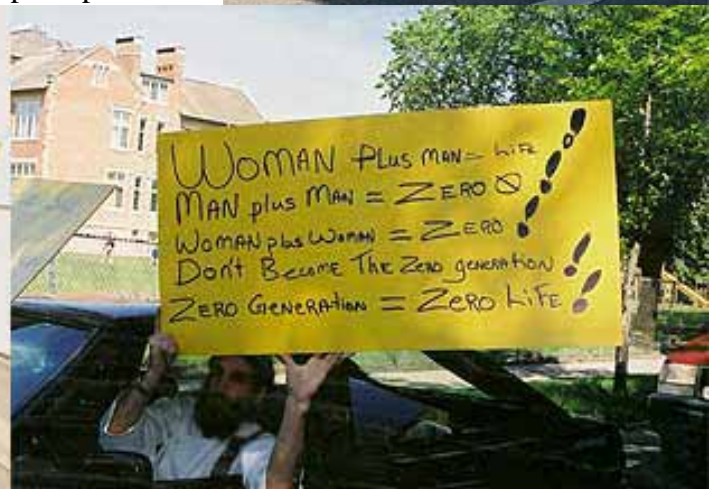 WOMAN PLUS MAN = LIFE !
MAN plus MAN = ZERO 0 !
WOMAN plus WOMAN = ZERO !
Don't Become The Zero generation !
ZERO GENERATION = ZERO LIFE !